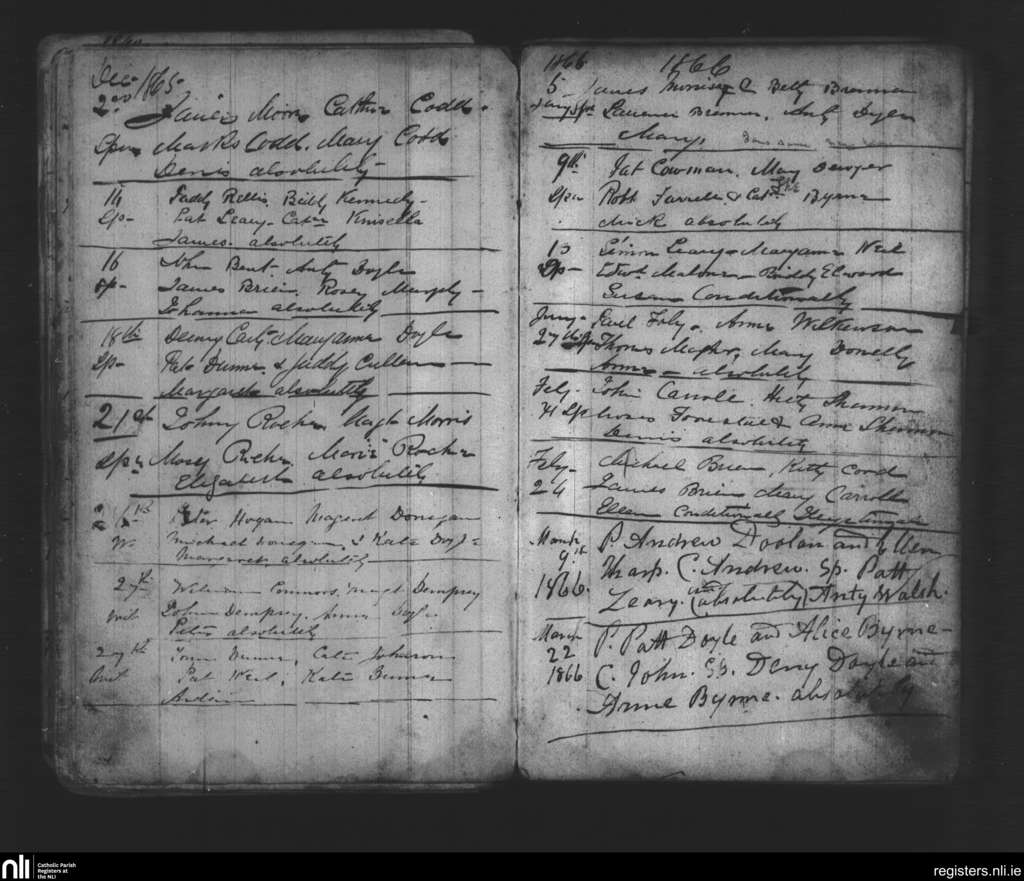 Dec 1865
2nd James Moore Cathne Codd
Spon Marks Codd. Mary Codd
Denis absolutely
14 Paddy Rellis. Biddy Kennedy
Sp- Pat Leary. Cathn Kinsella
James. absolutely
16 John Bent. Anty Doyle
Sp- James Brien. Rosey Murphy
Johanna absolutely
18th Denny Maryanne Doyle
Sp- Pat Dunne & Paddy Cullen
Margaret absolutely
21st Johny Roche. Margt Morris
Sp Mosey Roche. Maria Roche
Elizabeth absolutely
Peter Hogan Margaret Donegan
W. Michael Donegan & Kate Doyle
Margaret absolutely
27th William Connors. Margt Dempsey
Wit John Dempsey. Anne Doyle
Peter absolutely
27th Tom Dunne, Cate Johnson
Wit Pat Neil, Kate Dunne
Andrew
1866 1866
5 James Morrissey & Betty Brennan
Jany Brennan. Anty Dyer
Mary
9th Pat Cowman. Mary Dwyer
Spn Robt Farrell & Cath Byrne
Mick absolutely
13 Simon Leary. Maryanne Neil
Sp- Edwd Malone - Biddy Elwood
Susan Conditionally
Jany- Foley. Anne Wilkinson
27th Sp Thomas Maher. Mary Donelly
Anne - absolutely
Feby- John Carroll. Hetty Shannon
Sp Moses Forrestal & Anne Shannon
absolutely
Feby- Michael Brien, Kitty Codd
24 James Brien Mary Carroll
Ellen Conditionally
March P. Andrew Doolan and Ellen
9th Tharp. C. Andrew. Sp. Patt
1866. Leary. and (absolutely) Anty Walsh.
March P. Patt Doyle and Alice Byrne-
22 C. John. Sp. Deny Doyle and
1866 Anne Byrne. absolutely
nli Catholic Parish
Registers at
the NLI
registers.nli.ie